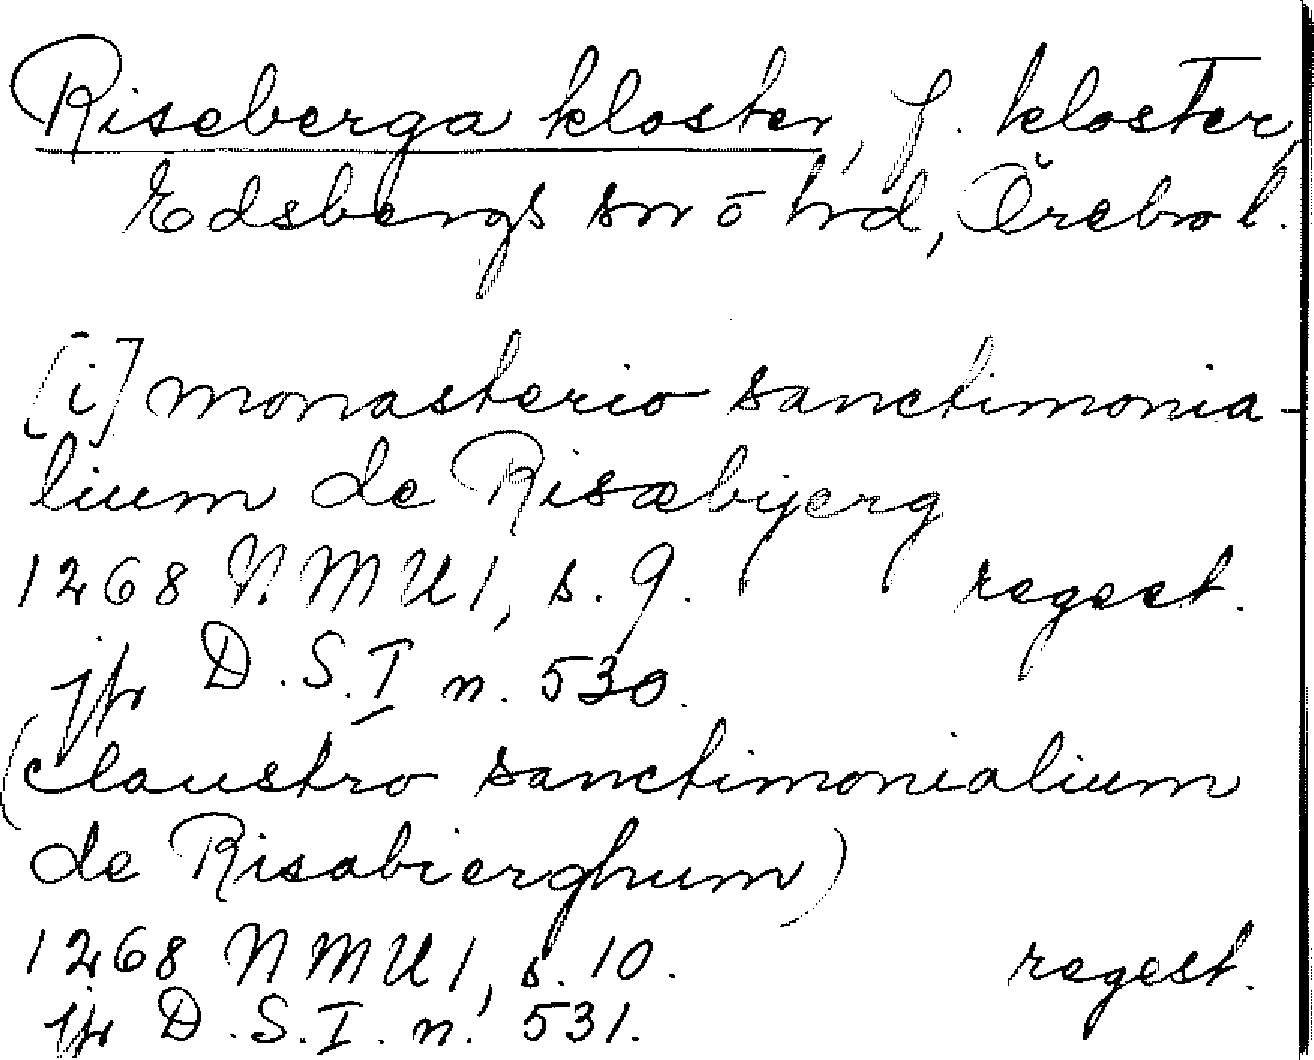 Riseberga kloster, f. kloster,
Edsbergs sn o hd, Örebro l.
[i] monasterio sanctimonia-
lium de Risæbyerg
1268 NMU 1, s. 9. regest.
jfr D.S. I n. 530.
(claustro sanctimonialium
de Risabierghum)
1268 NMU 1, s. 10. regest.
jfr D.S. I. n. 531.